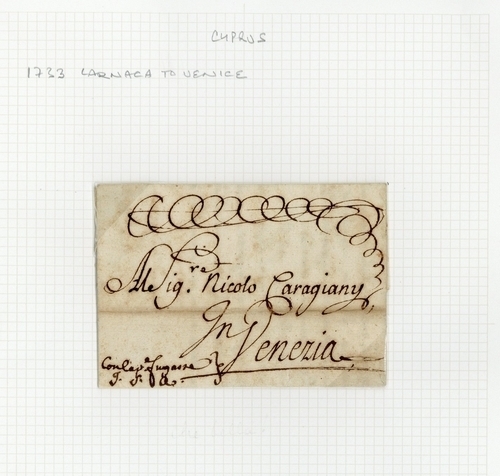 CYPRUS
1733 LARNACA TO VENICE
Al Sig.re Nicolo Caragiany
In Venezia